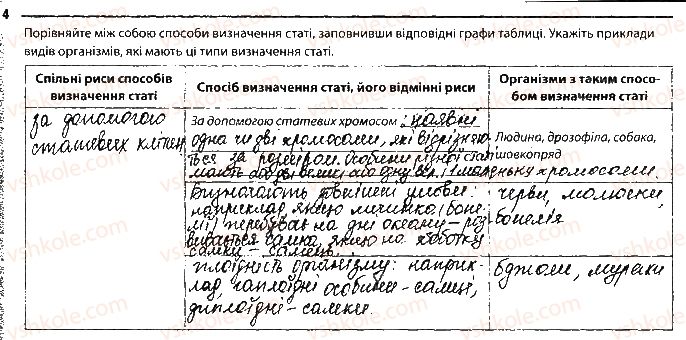 4
Порівняйте між собою способи визначення статі, заповнивши відповідні графи таблиці. Укажіть приклади
видів організмів, які мають ці типи визначення статі.
Спільні риси способів
визначення статі
Спосіб визначення статі, його відмінні риси
Організми з таким спосо-
бом визначення статі
за допомогою
статевих клітин
За допомогою статевих хромосом: наявні
одна чи дві хромосоми, які відрізня
ться за розміром. Особини різної статі
мають або дві великі, або одну вел. і 1 маленьку хромосоми.
Людина, дрозофіла, собака,
шовкопряд
Визначають зовнішні умови:
наприклад, якщо личинка (боне
лії) перебуває на дні океану - роз
вивається самка, якщо на хоботку
самки - самець.
черви, молюски,
бонелія
плоїдність організму: наприк-
лад, гаплоїдні особини - самці,
диплоїдні - самки.
бджоли, мурахи
vshkole.com